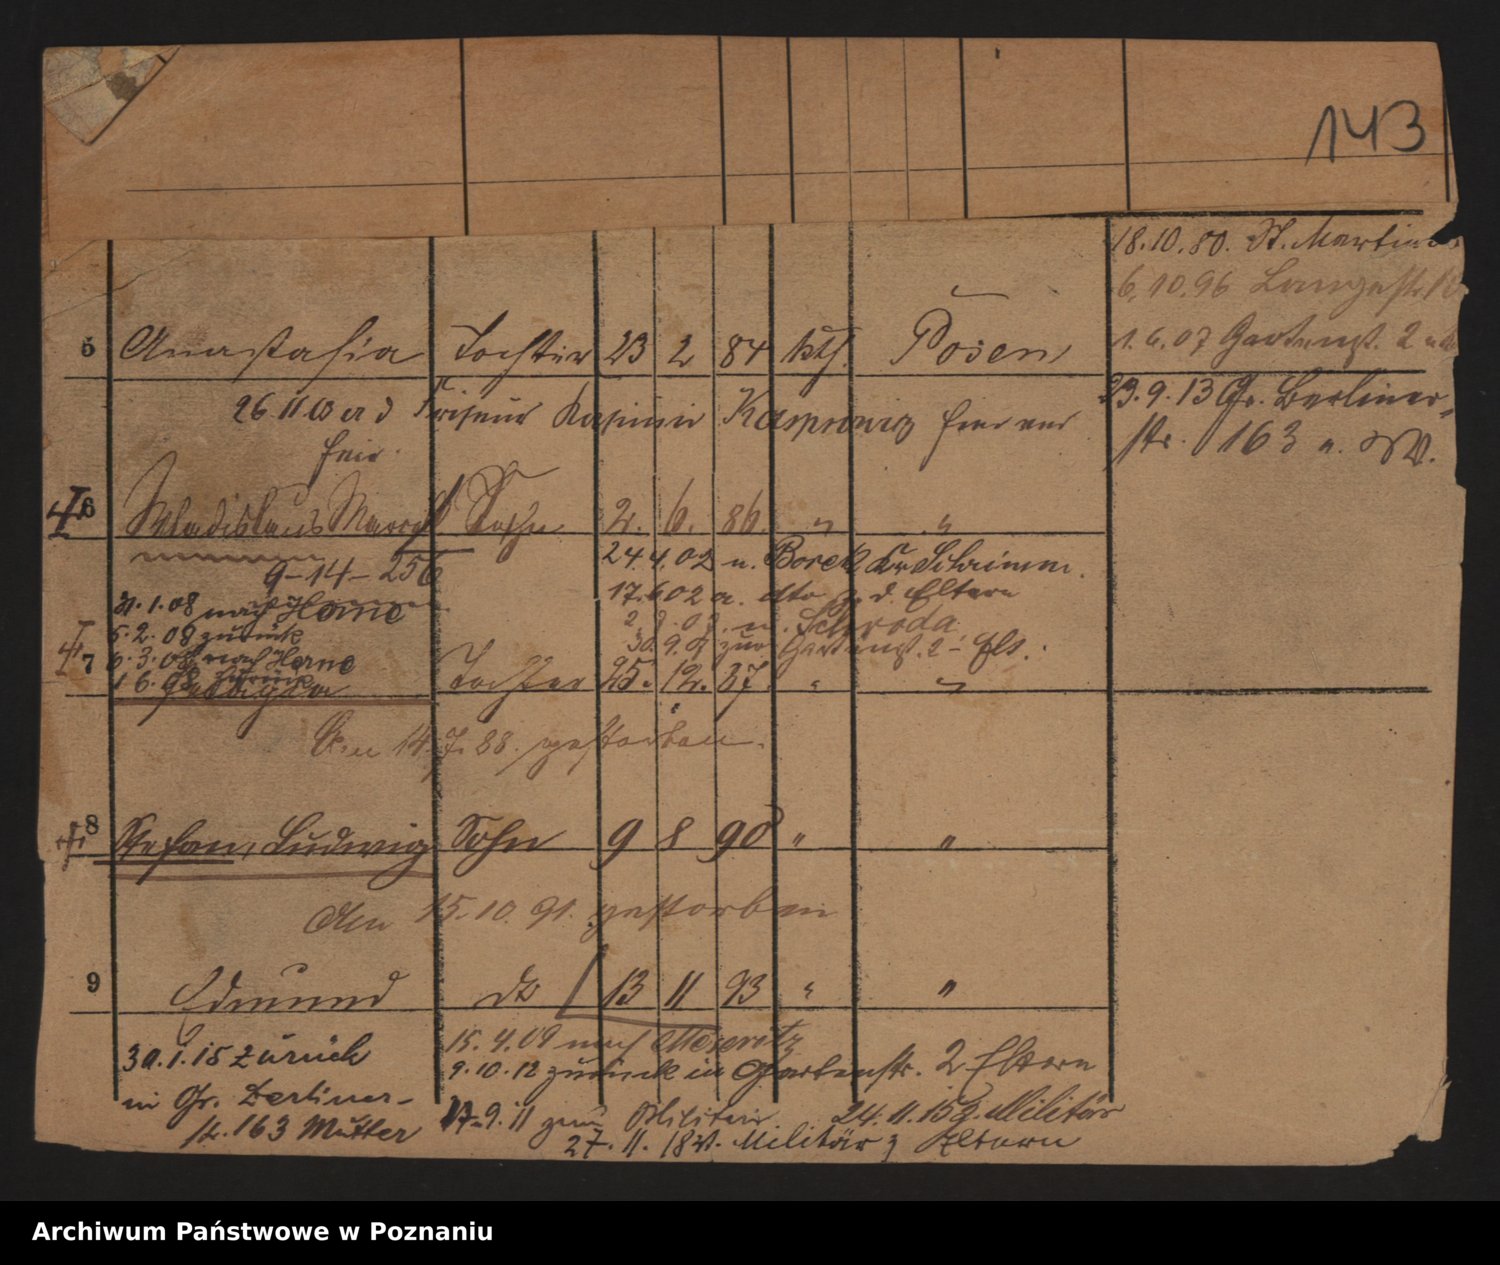 143
18.10.80. St. Martin
6.10.96 Langestr.
1.6.07 Gartenst. 2
5 Anastasia Tochter 23 2 84 kth. Posen
23.9.13 Gr. Berliner-
str. 163 n. W.
26.11 Friseur Kasimir Kasprowicz
6 Wladislaus Sohn 2. 6. 86. " "
9-14-256
24.4.02 n. Borek Kr. Schrimm.
17.6.02 a. dto z. d. Eltern
n. Schroda
31.1.08 nach Herne
5.2.08 zurück
6.3.08 nach Herne
zurück
30.9. zur Gartenst. 2 Elt.
7 Tochter 25. 12. 87. " "
Am 14.7.88. gestorben.
8 Stefan, Ludwig Sohn 9 8 90 " "
Am 15.10.91. gestorben
9 Edmund do 13 11 93 " "
30.1.15 zurück
in Gr. Berliner-
str. 163 Mutter
15.4.09 nach Meseritz
9.10.12 zurück in Gartenstr. 2 Eltern
9.11 zum Militär 24.11.15 z. Militär
27.11.18 v. Militär z Eltern
Archiwum Państwowe w Poznaniu